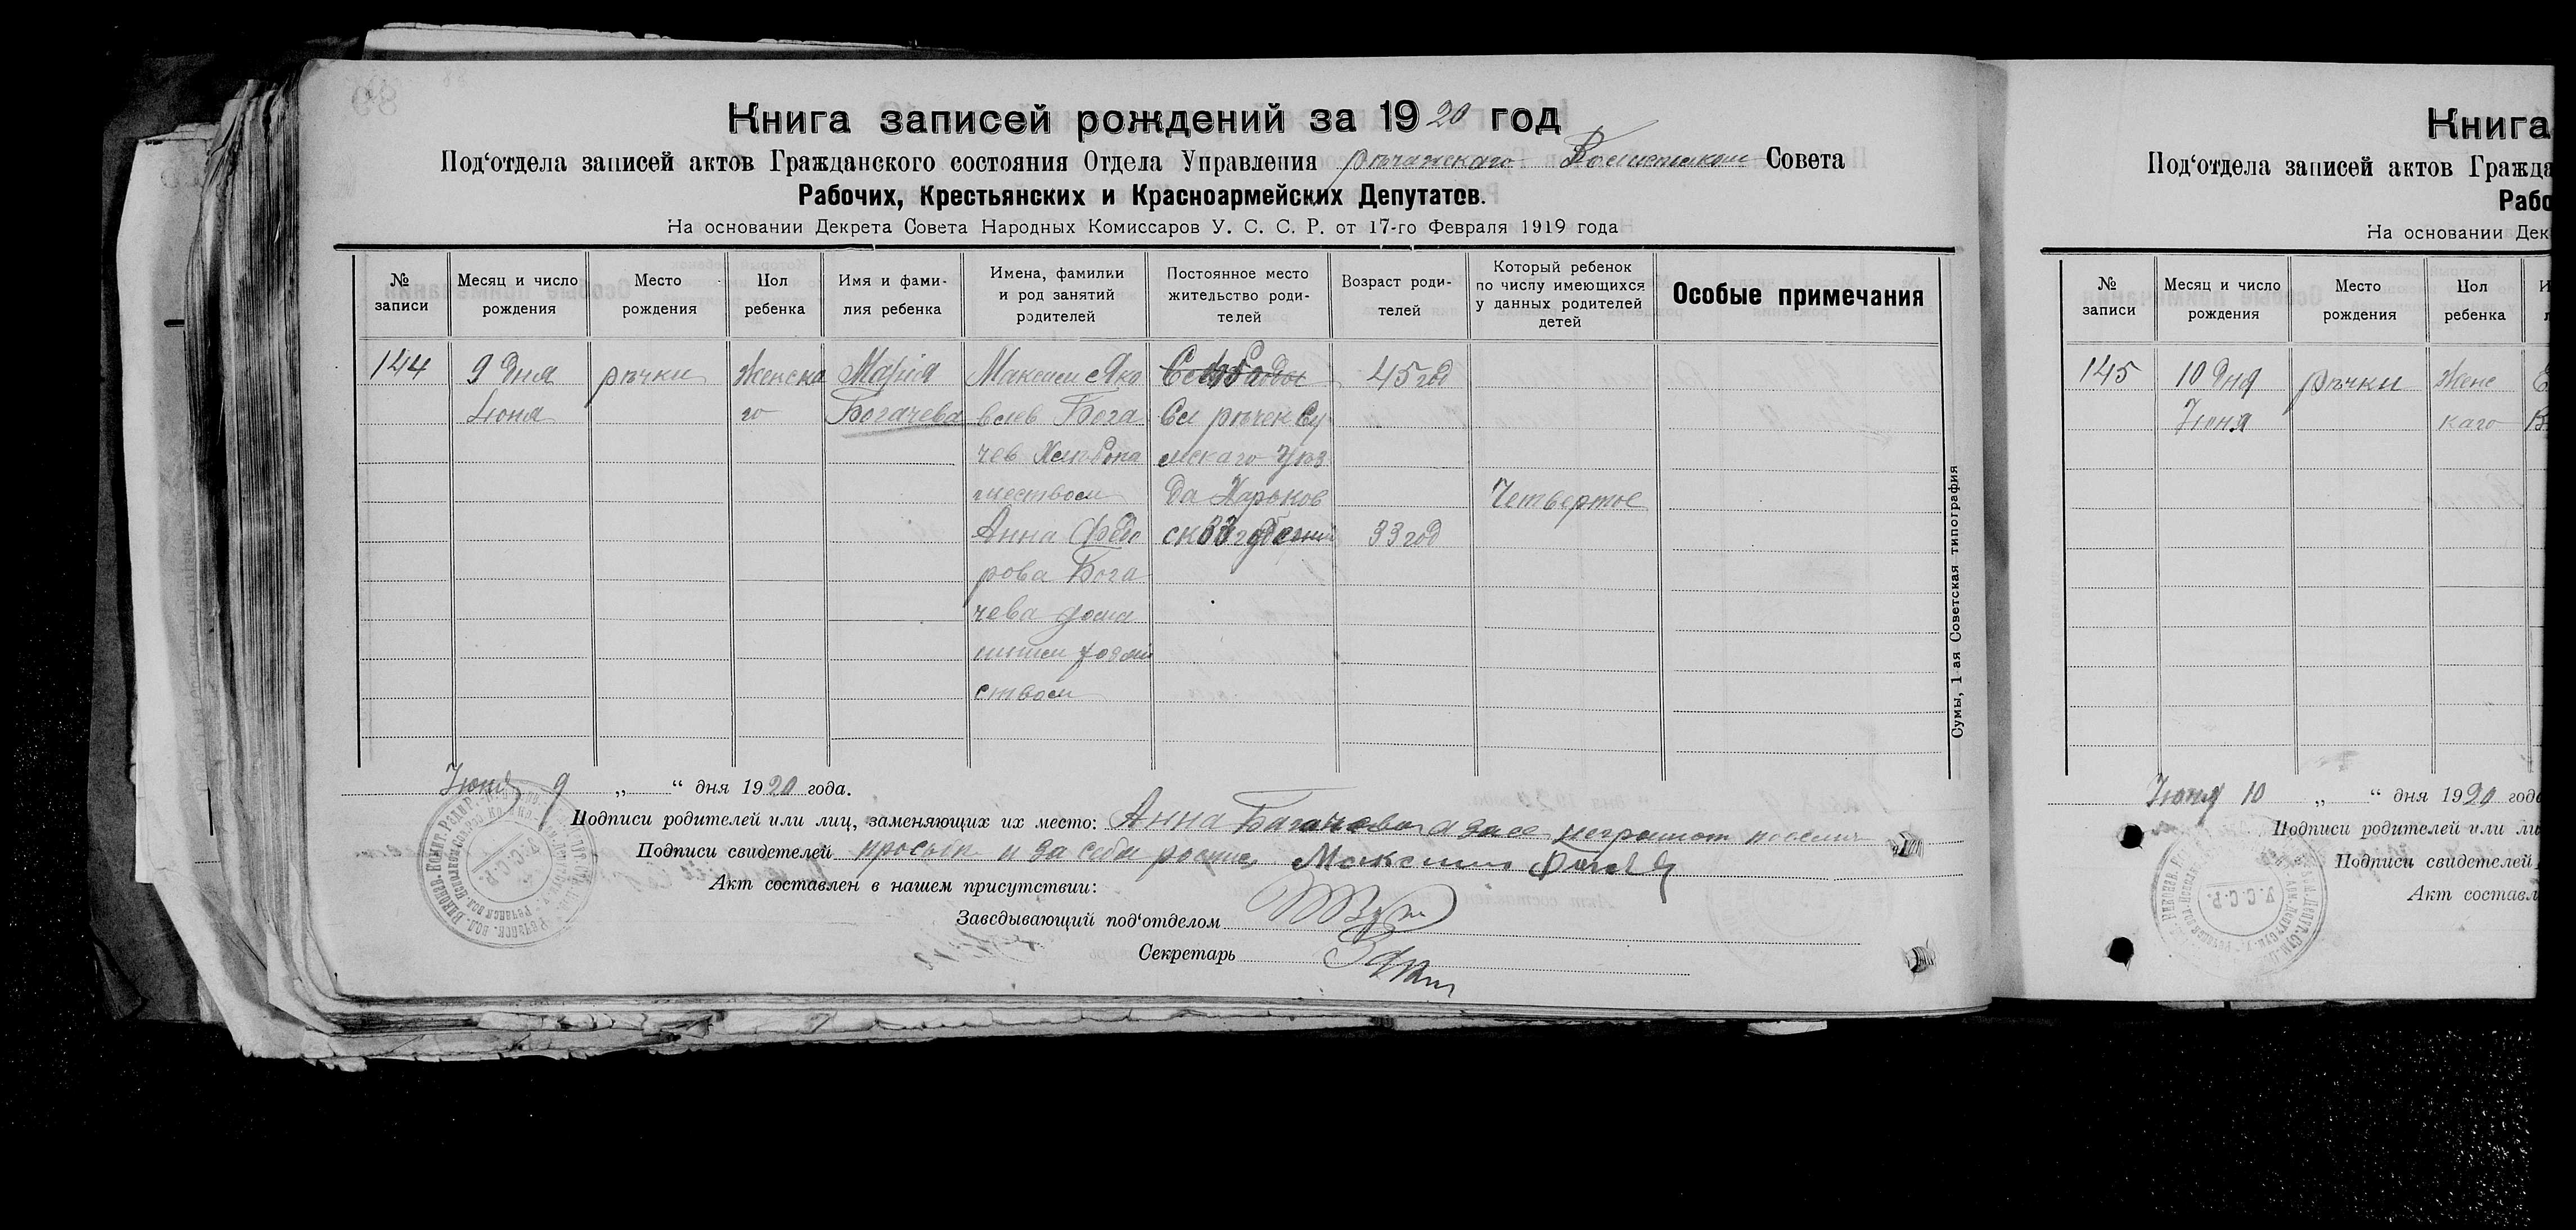 Книга записей рождений за 1920 год
Под‘отдела записей актов Гражданского состояния Отдела Управления Совета
Рабочих, Крестьянских и Красноармейских Депутатов.
На основании Декрета Совета Народных Комиссаров У. С. С. Р. от 17-го Февраля 1919 года
№ записи
Месяц и число рождения
Место рождения
Пол ребенка
Имя и фамилия ребенка
Имена, фамилии и род занятий родителей
Постоянное место жительство родителей
Возраст родителей
Который ребенок по числу имеющихся у данных родителей детей
Особые примечания
144
9 дня
Іюня
рѣчки
Женска
го
Марія
Богачева
Максим Яко
влев Бога
чев Хлѣбопа
шеством
Анна Федо
рова Бога
чева дома
ством
Сел рѣчек Су
мскаго Уѣз
да Харьков
45 год
33 год
Четвертое
Сумы, 1-ая Советская типография
Іюня 9 „ “ дня 1920 года.
Подписи родителей или лиц, заменяющих их место: Анна Багачова а за ее неграмот
Подписи свидетелей и за себя Максим
Акт составлен в нашем присутствии:
Заведывающий под‘отделом
Секретарь
Книга
Под‘отдела записей актов Гражда
Рабо
На основании Дек
№ записи
Месяц и число рождения
Место рождения
Пол ребенка
145
10 дня
Іюня
рѣчки
Женс
каго
Іюня 10 „ “ дня 1920 года
Подписи родителей или ли
Подписи свидетелей
Акт составл
У.С.С.Р.